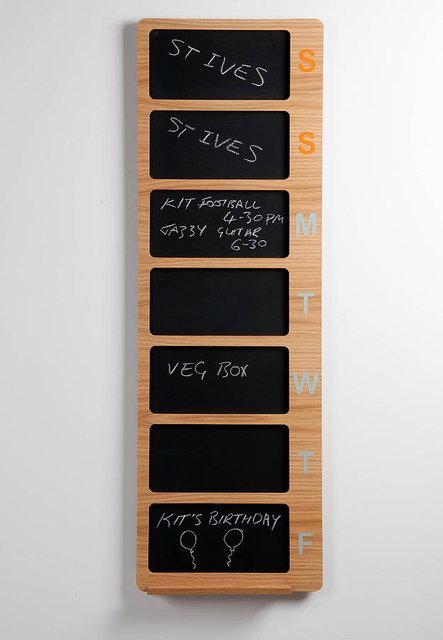 ST IVES
S
ST IVES
S
KIT FOOTBALL
4-30PM
JAZZY GUITAR
6-30
M
T
VEG BOX
W
T
KIT'S BIRTHDAY
F